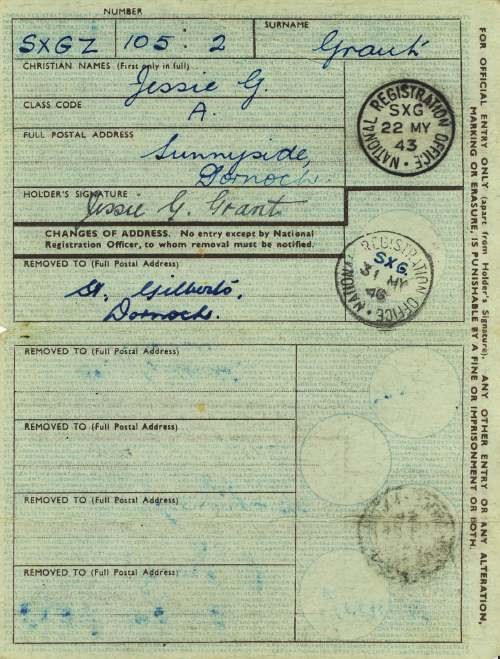 NUMBER
SURNAME
SXGZ 105 : 2
Grant
CHRISTIAN NAMES (First only in full)
Jessie G.
CLASS CODE
A.
FULL POSTAL ADDRESS
Sunnyside,
Dornoch.
HOLDER'S SIGNATURE
Jessie G. Grant
NATIONAL REGISTRATION OFFICE
SXG
22 MY
43
CHANGES OF ADDRESS. No entry except by National
Registration Officer, to whom removal must be notified.
REMOVED TO (Full Postal Address)
St. Gilberts.
Dornoch.
NATIONAL REGISTRATION OFFICE
SXG
31 MY
46
REMOVED TO (Full Postal Address)
REMOVED TO (Full Postal Address)
REMOVED TO (Full Postal Address)
REMOVED TO (Full Postal Address)
FOR OFFICIAL ENTRY ONLY (apart from Holder's Signature). ANY OTHER ENTRY OR ANY ALTERATION,
MARKING OR ERASURE, IS PUNISHABLE BY A FINE OR IMPRISONMENT OR BOTH